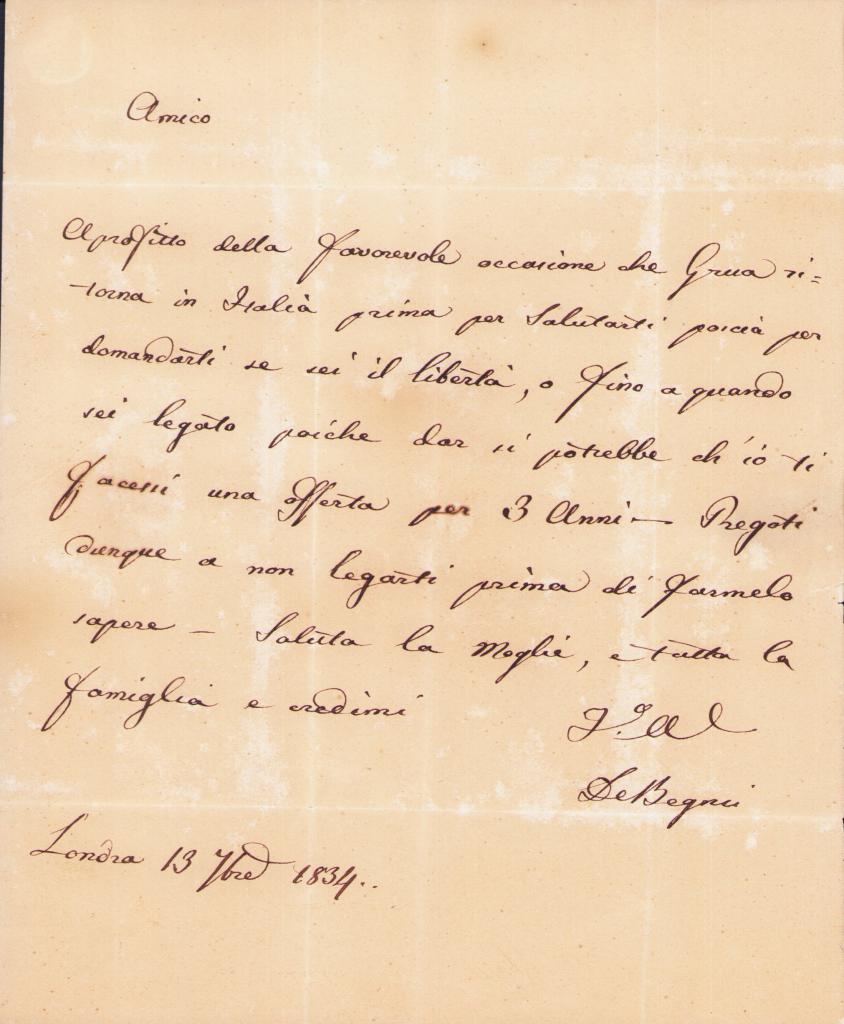 Amico
Aprofitto della favorevole occasione che Grua ri=
torna in Italia prima per Salutarti poscia per
domandarti se sei il libertà, o fino a quando
sei legato poiche dar si potrebbe ch'io ti
facessi una offerta per 3 Anni — Pregoti
dunque a non legarti prima di farmelo
sapere — Saluta la Moglie, e tutta la
famiglia e credimi
DeBegnis
Londra 13 7bre 1834..